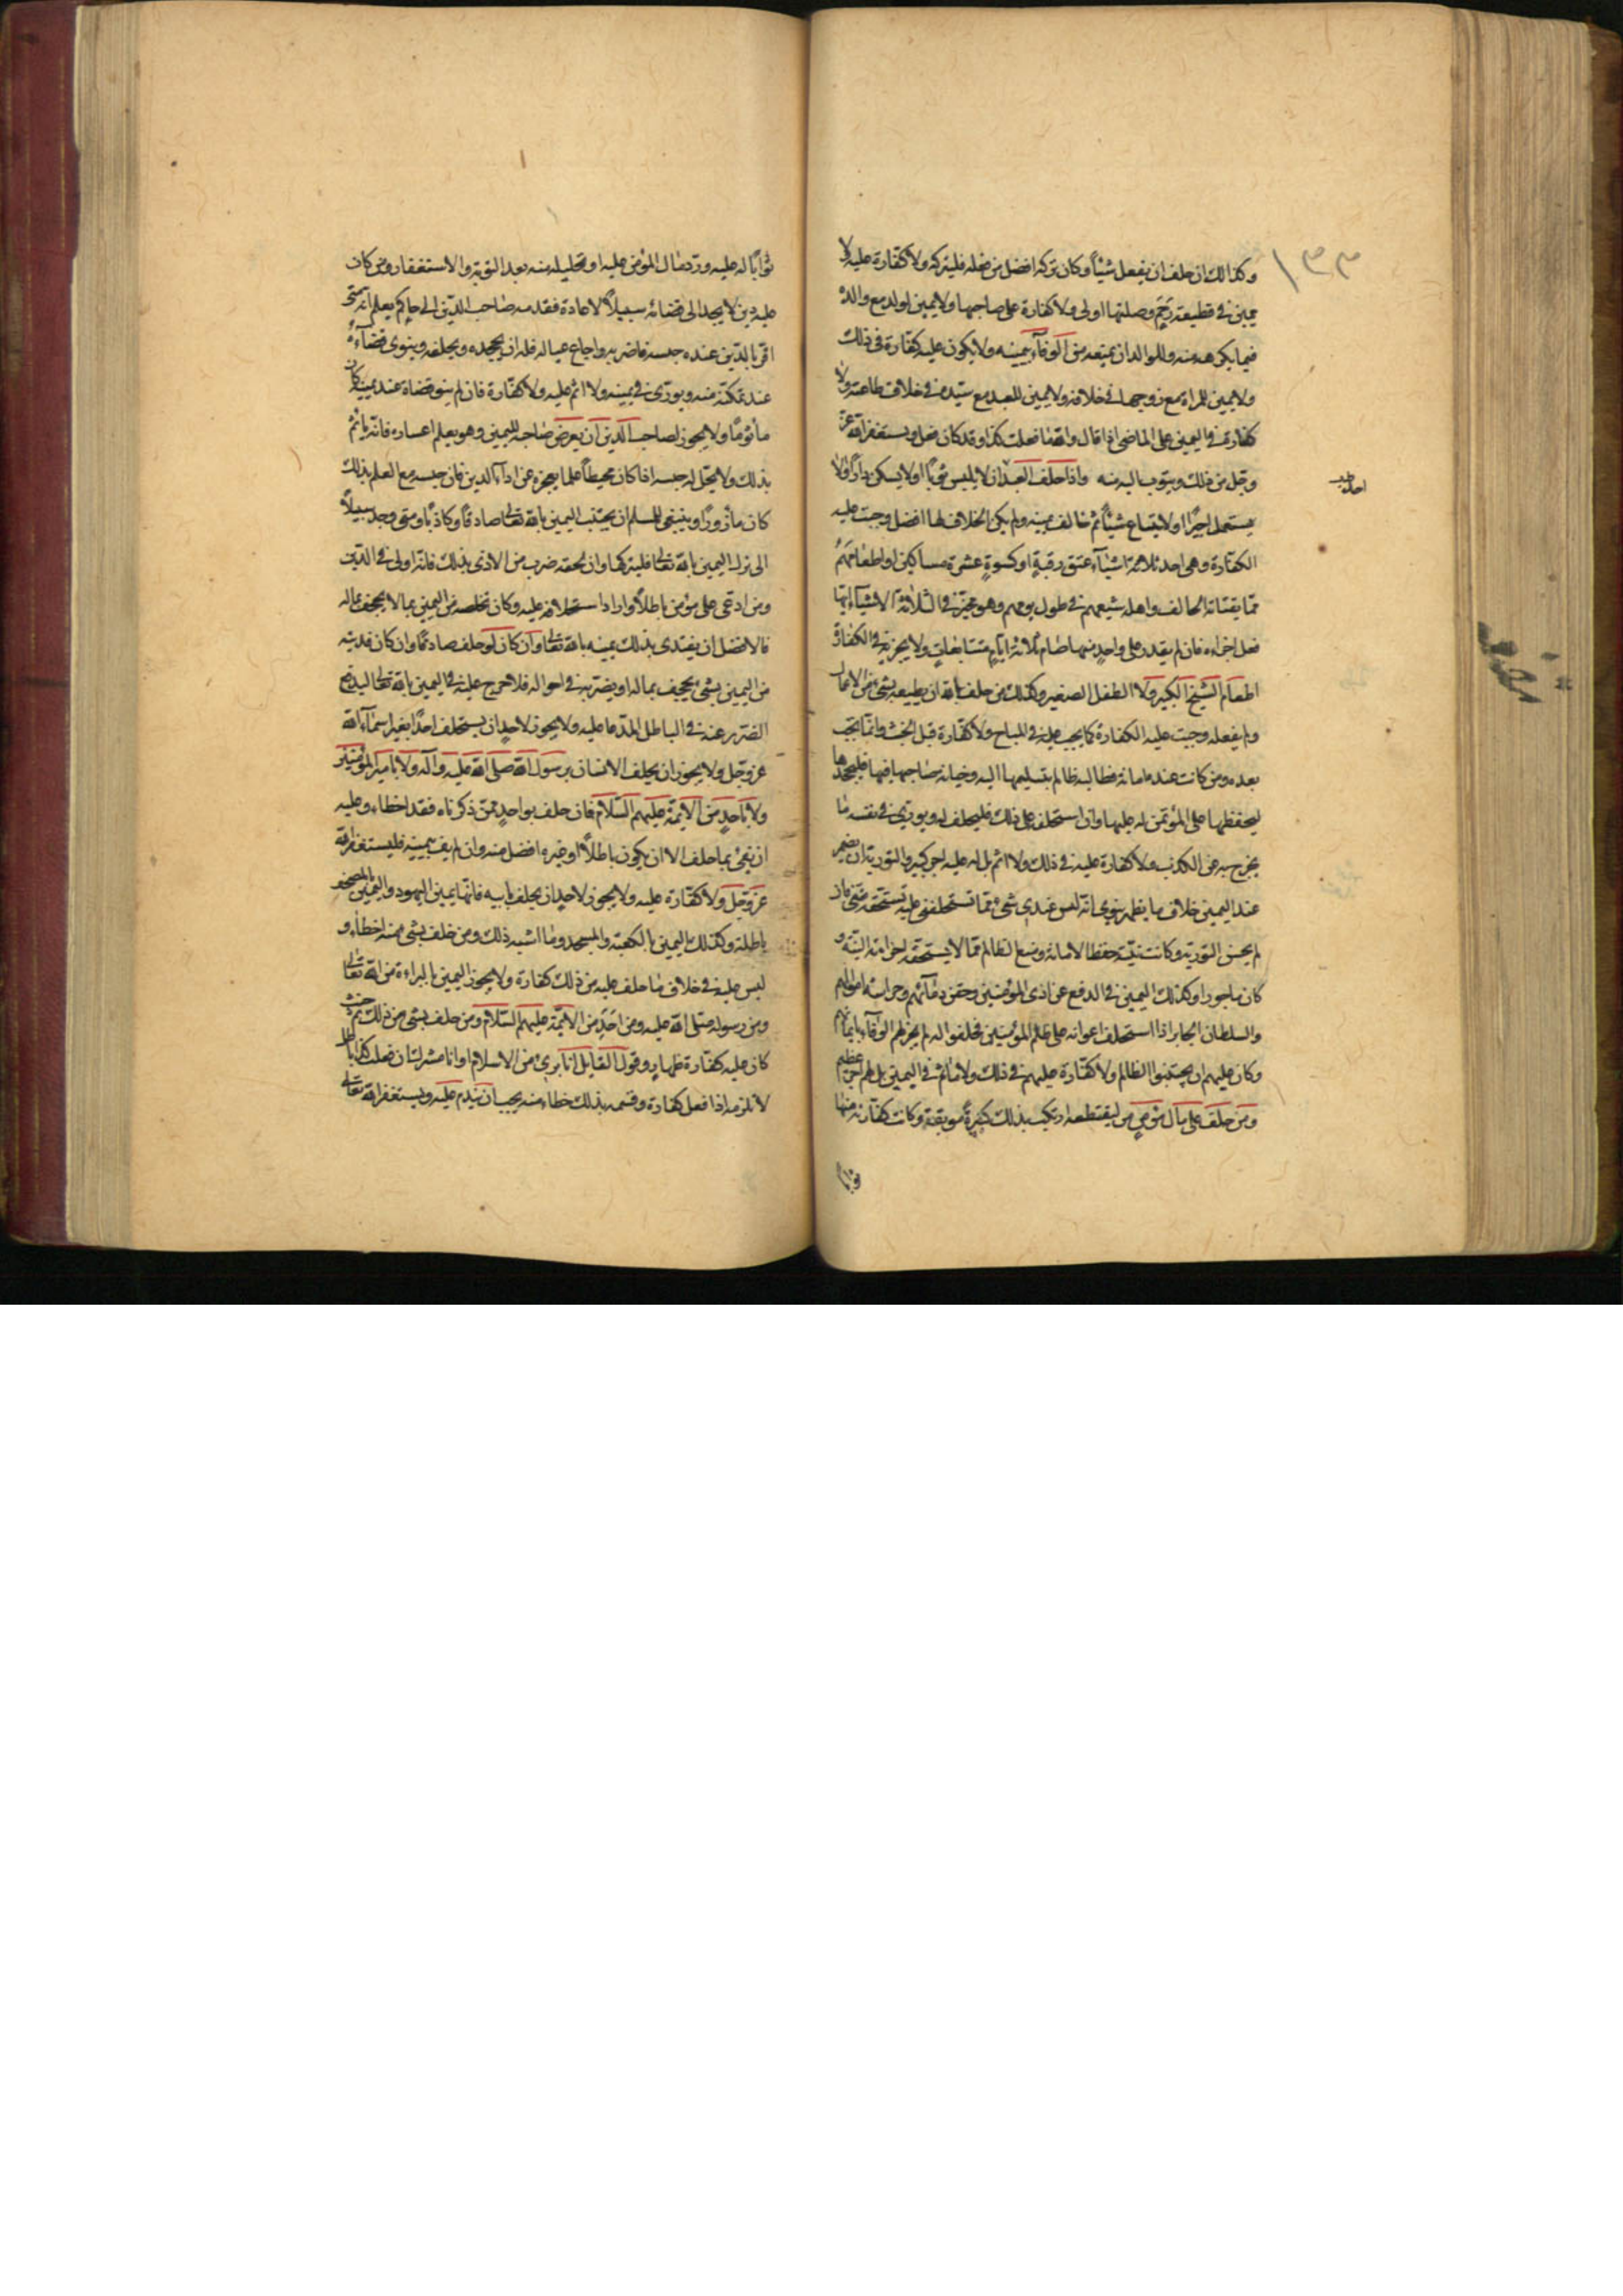 ١٣٣
وكذالك ان حلف ان يفعل شيئاً وكان تركه افضل من فعله فليتركه ولا كفارة عليه ولا
يمين في قطيعة رَحِمٍ وصلتها اولى ولا كفارة على صاحبها ولا يمين لولد مع والدهُ
فيما يكرهه منه وللوالد ان يمنعه من الوفآء بيمينه ولا يكون عليه كفارة في ذلك
ولا يمين للمراة مع زوجها في خلافه ولا يمين للعبد مع سيّده في خلاف طاعته ولا
كفارة في اليمين على الماضي اذا قال والله ما فعلت كذا وقد كان فعل ويستغفر الله عزّ
وجل من ذلك ويتوب اليه منه واذا حلف العبد ان لا يلبس ثوباً او لا يسكن داراً ولا
يستعمل اجيرًا او لا يبتاع شيئاً ثم خالف يمينه ولم يكن الخلاف لها افضل وجبت عليه
الكفارة وهي احد ثلاثة اشيآء عتق رقبةٍ او كسوةٍ عشرة مساكين او اطعامهُمُ
ممّا يقتاته الحالف واهله شبعهم في طول يومهم وهو مخيّر في الثلاثة الاشيآء ايّها
فعل اجزاه فان لم يقدر على واحدٍ منها صام ثلاثة ايّامٍ متتابعاتٍ ولا يجزيه في الكفّارة
اطعام الشيخ الكبير ولا الطفل الصغير وكذلك من حلف بالله ان يطيعه بشئ من الاعمال
ولم يفعله وجبت عليه الكفارة كما يجب عليه في المباح ولا كفّارة قبل الحنث وانّما تجب
بعده ومن كانت عنده امانة فطالبه ظالم بتسليمها اليه وخيانة صاحبها فيها فليجحدها
ليحفظها على المؤتمن له عليها وان استحلف على ذلك فليحلف له ويورّي في نفسه ما
يخرج به عن الكذب ولا كفارة عليه في ذلك ولا اثم بل له عليه اجر كبير والتورية ان يضمر
عند اليمين خلاف ما يظهر ينوي انّه ليس عندي شئ ممّا تستحلفني عليه تستحقه منّي فان
لم يحسن التورية وكانت نيّته حفظ الامانة ومنع الظالم ممّا لا يستحقه اجزاته النيّة و
كان ماجورا وكذلك اليمين في الدفع عن اذى المؤمنين وحقن دمآئهم وحراسة اموالهم
والسلطان الجاير اذا استحلف اعوانه على ظلم المؤمنين فحلفوا له لم يجز لهم الوفآء بايمانهم
وكان عليهم ان يجتنبوا الظالم ولا كفّارة عليهم في ذلك ولا ماثم في اليمين بل لهم اجر عظيم
ومن حلف على مال مؤمن ليقتطعه ارتكب بذلك كبيرةً موبقة وكانت كفّارته منها
ثواباً له عليه وردّ مال المؤمن عليه او تحليله منه بعد التوبة والاستغفار ومن كان
عليه دين لا يجد الى قضائه سبيلاً لاعادة فقدمه صاحب الدّين الى حاكم يعلم انّه متى
اقرّ بالدّين عنده حبسه فاضرّ به واجاع عياله فله ان يجحده ويحلف وينوى قضآءهُ
عند تمكنّه منه ويورّى في يمينه ولا اثم عليه ولا كفّارة فان لم ينو قضاه عند يمينه كان
مأثومًا ولا يجوز لصاحب الدّين ان يعرض صاحبه لليمين وهو يعلم اعساره فانّه يأثمُ
بذلك ولا يحّل له حبسه اذا كان محيطاً علما بعجزه عن ادآء الدين فان حبسه مع العلم بذلك
كان مأزورًا وينبغي للمسلم ان يجتنب اليمين بالله تعالى صادقاً وكاذباً ومتى وجد سبيلاً
الى ترك اليمين بالله تعالى فليتركها وان لحقه ضرب من الاذى بذلك فانّه اولى في الدّين
ومن ادعى على مؤمن باطلاً واراد استحلافه عليه وكان تخلصه من اليمين بما لا يجحف بماله
فالافضل ان يفتدى بذلك يمينه بالله تعالى وان كان لو حلف صادقًا وان كان فديته
من اليمين بشئ يجحيف بماله او يضّر به في احواله فلا حرج عليه في اليمين بالله تعالى ليدفع
الضرر عنه في الباطل المدّعا عليه ولا يجوز لاحدٍ ان يستحلف احدًا بغير اسمآء الله
عز وجل ولا يجوز ان يحلف الانسان برسول الله صلى الله عليه وآله ولا بامير المؤمنين
ولا باحدٍ من الايمّة عليهم السّلام فان حلف بواحدٍ ممّن ذكرناه فقد اخطاء وعليه
ان يفئ بما حلف الا ان يكون باطلاً او غيره افضل منه وان لم يف بيمينه فليستغفر الله
عزّ وجّل ولا كفّارة عليه ولا يجوز لاحدٍ ان يحلف بابيه فانّها يمين اليهود واليمين بالمصحف
باطلة وكذلك اليمين بالكعبة والمسجد وما اشبه ذلك ومن حلف بشئ منه اخطأ و
ليس عليه في خلاف ما حلف عليه من ذلك كفارة ولا يجوز اليمين بالبراءة من الله تعالى
ومن رسوله صلى الله عليه ومن احَدٍ من الايمّة عليهم السّلام ومن حلف بشئ من ذلك ثم حنث
كان عليه كفّارة ظهارٍ وقول القايل انا برئ من الاسلام او انا مشرك ان فعلت كذا باطل
لا تلزمه اذا فعل كفارة وقسمه بذلك خطاء منه يجب ان يندم عليه ويستغفر الله تعالى